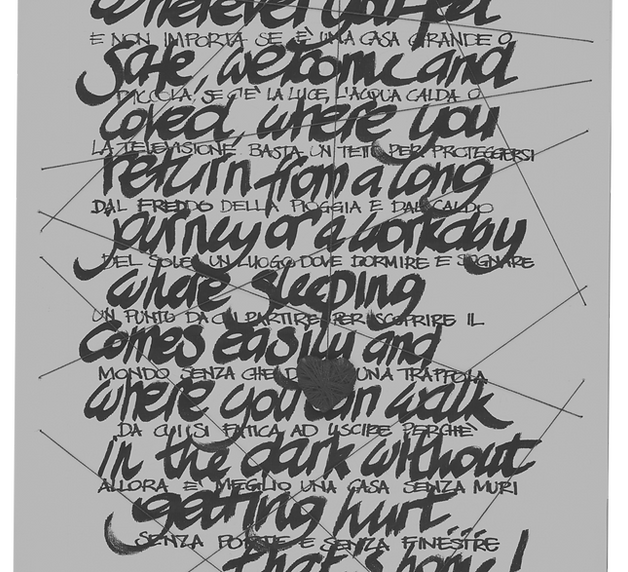 wherever you feel
E NON IMPORTA SE È UNA CASA GRANDE O
Safe, welcome and
PICCOLA, SE C'È LA LUCE, L'ACQUA CALDA O
loved, where you
LA TELEVISIONE. BASTA UN TETTO PER PROTEGGERSI
return from a long
DAL FREDDO DELLA PIOGGIA E DAL CALDO
journey or a workday
DEL SOLE, UN LUOGO DOVE DORMIRE E SOGNARE
where sleeping
UN PUNTO DA CUI PARTIRE PER SCOPRIRE IL
comes easily and
MONDO SENZA CHE D UNA TRAPPOLA
where you can walk
DA CUI SI FATICA AD USCIRE PERCHE'
in the dark without
ALLORA E' MEGLIO UNA CASA SENZA MURI
getting hurt...
SENZA PORTE E SENZA FINESTRE
that's home!